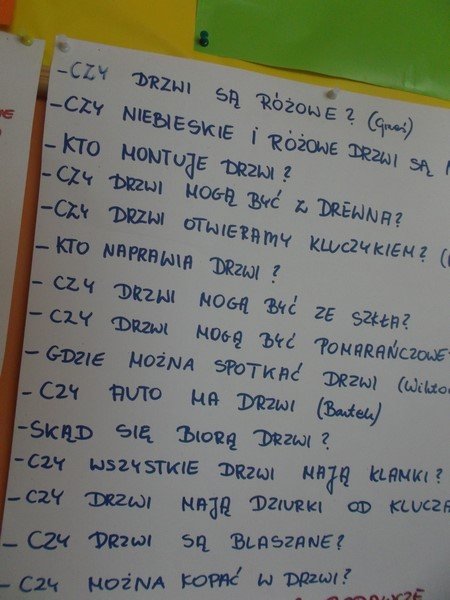 - CZY DRZWI SĄ RÓŻOWE? (Gnaś)
- CZY NIEBIESKIE I RÓŻOWE DRZWI SĄ
- KTO MONTUJE DRZWI?
- CZY DRZWI MOGĄ BYĆ Z DREWNA?
- CZY DRZWI OTWIERAMY KLUCZYKIEM? (
- KTO NAPRAWIA DRZWI?
- CZY DRZWI MOGĄ BYĆ ZE SZKŁA?
- CZY DRZWI MOGĄ BYĆ POMARAŃCZOWE
- GDZIE MOŻNA SPOTKAĆ DRZWI (Wikto
- CZY AUTO MA DRZWI (Bartek)
- SKĄD SIĘ BIORĄ DRZWI?
- CZY WSZYSTKIE DRZWI MAJĄ KLAMKI?
- CZY DRZWI MAJĄ DZIURKI OD KLUCZA
- CZY DRZWI SĄ BLASZANE?
- CZY MOŻNA KOPAĆ W DRZWI?